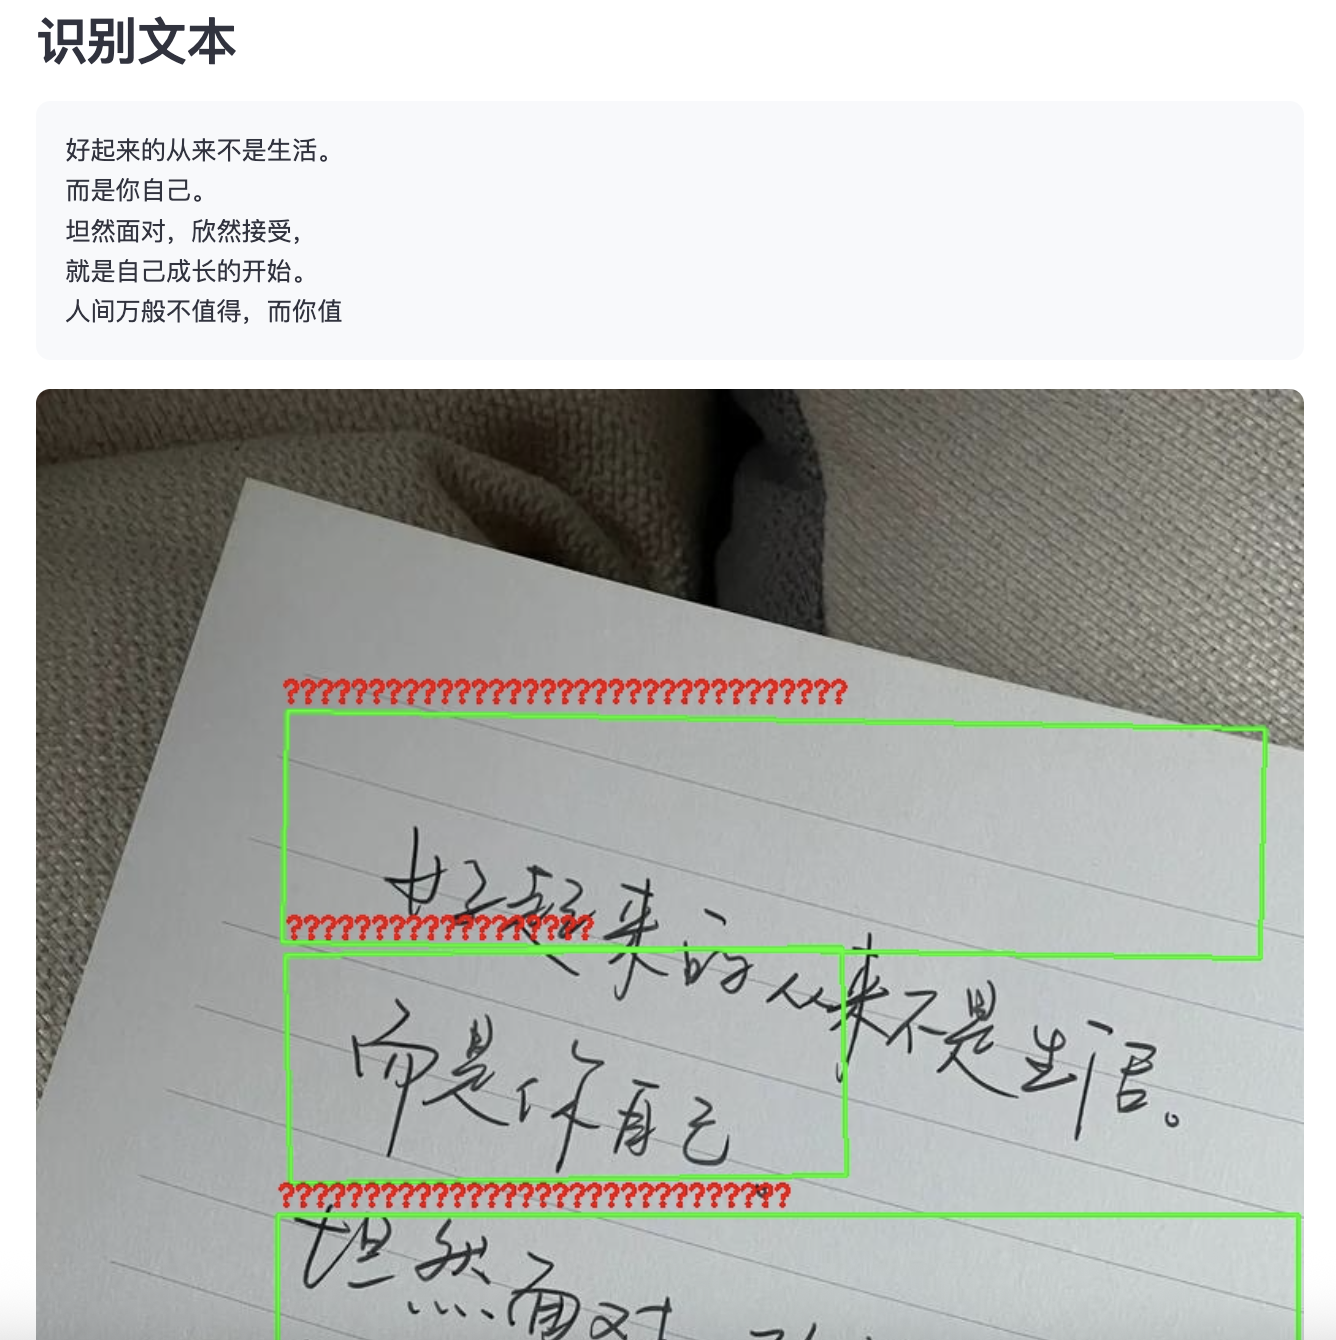 识别文本
好起来的从来不是生活。
而是你自己。
坦然面对，欣然接受，
就是自己成长的开始。
人间万般不值得，而你值
?????????????????????????????????
好起来的从来不是生活。
??????????????????
而是你自己
??????????????????????????????
坦然面对